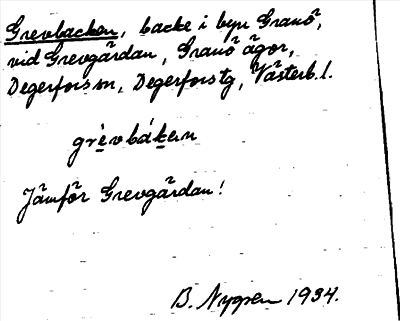 Grevbacken, backe i byn Granö,
vid Grevgårdan, Granö ägor,
Degerfors sn, Degerfors tg, Västerb. l.
grèvbákεn
Jämför Grevgårdan!
B. Nygren 1934.